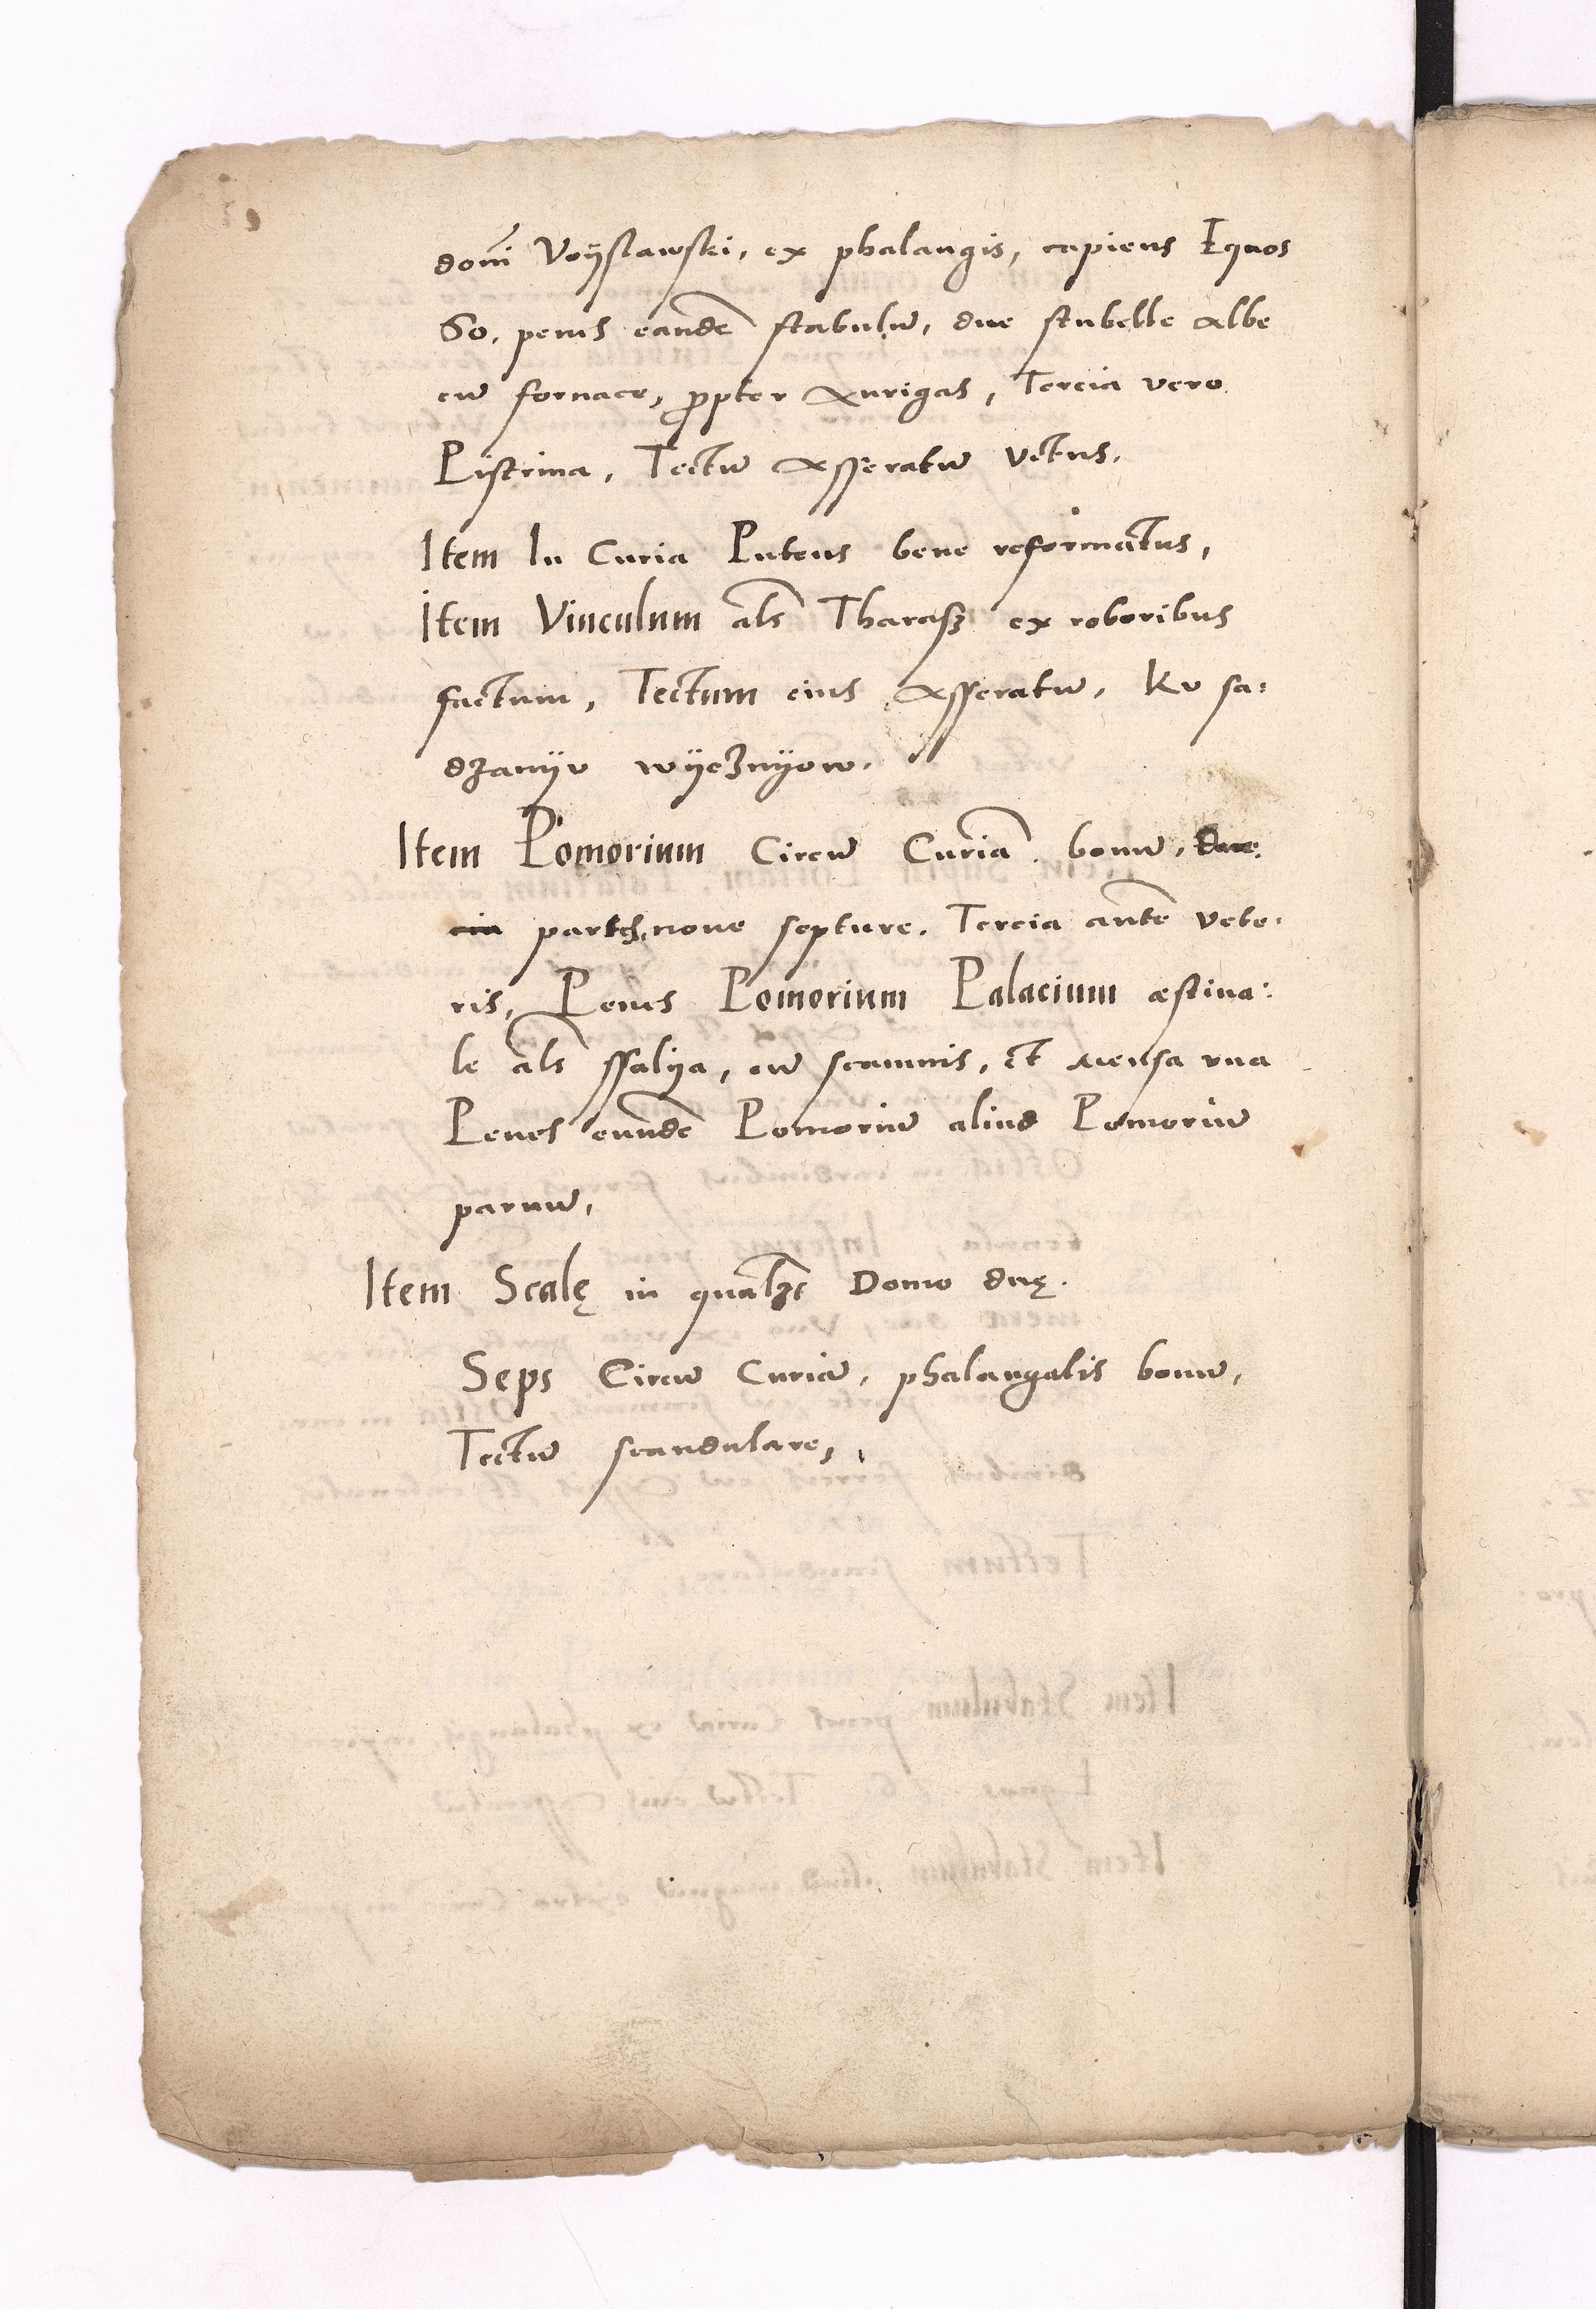 domi Voÿslawski, ex phalangis, capiens Equos
60. penes eandē stabulū, due stubelle albe
cū fornace, ꝓpter Aurigas, Tercia vero
Pistrina, Tectū Asseratū vetus.
Item In Curia Puteus bene reformatus,
Item Vinculum als Tharasz ex roboribus
factum, Tectum eius Asseratū, Kv sa:
dzanÿv wÿęcznÿow.
Item Pomorium Circū Curiā bonū, due
partes nove septure. Tercia autē vete:
ris, Penes Pomorium Palacium æstiva:
le als ssalÿa, cū scamnis, et mensa vna
Penes eundē Pomoriū aliud Pomoriū
parvū,
Item Scalę in qualꝫ Domo duę.
Seps Circū Curiā, phalangalis bonū,
Tectū scandulare,